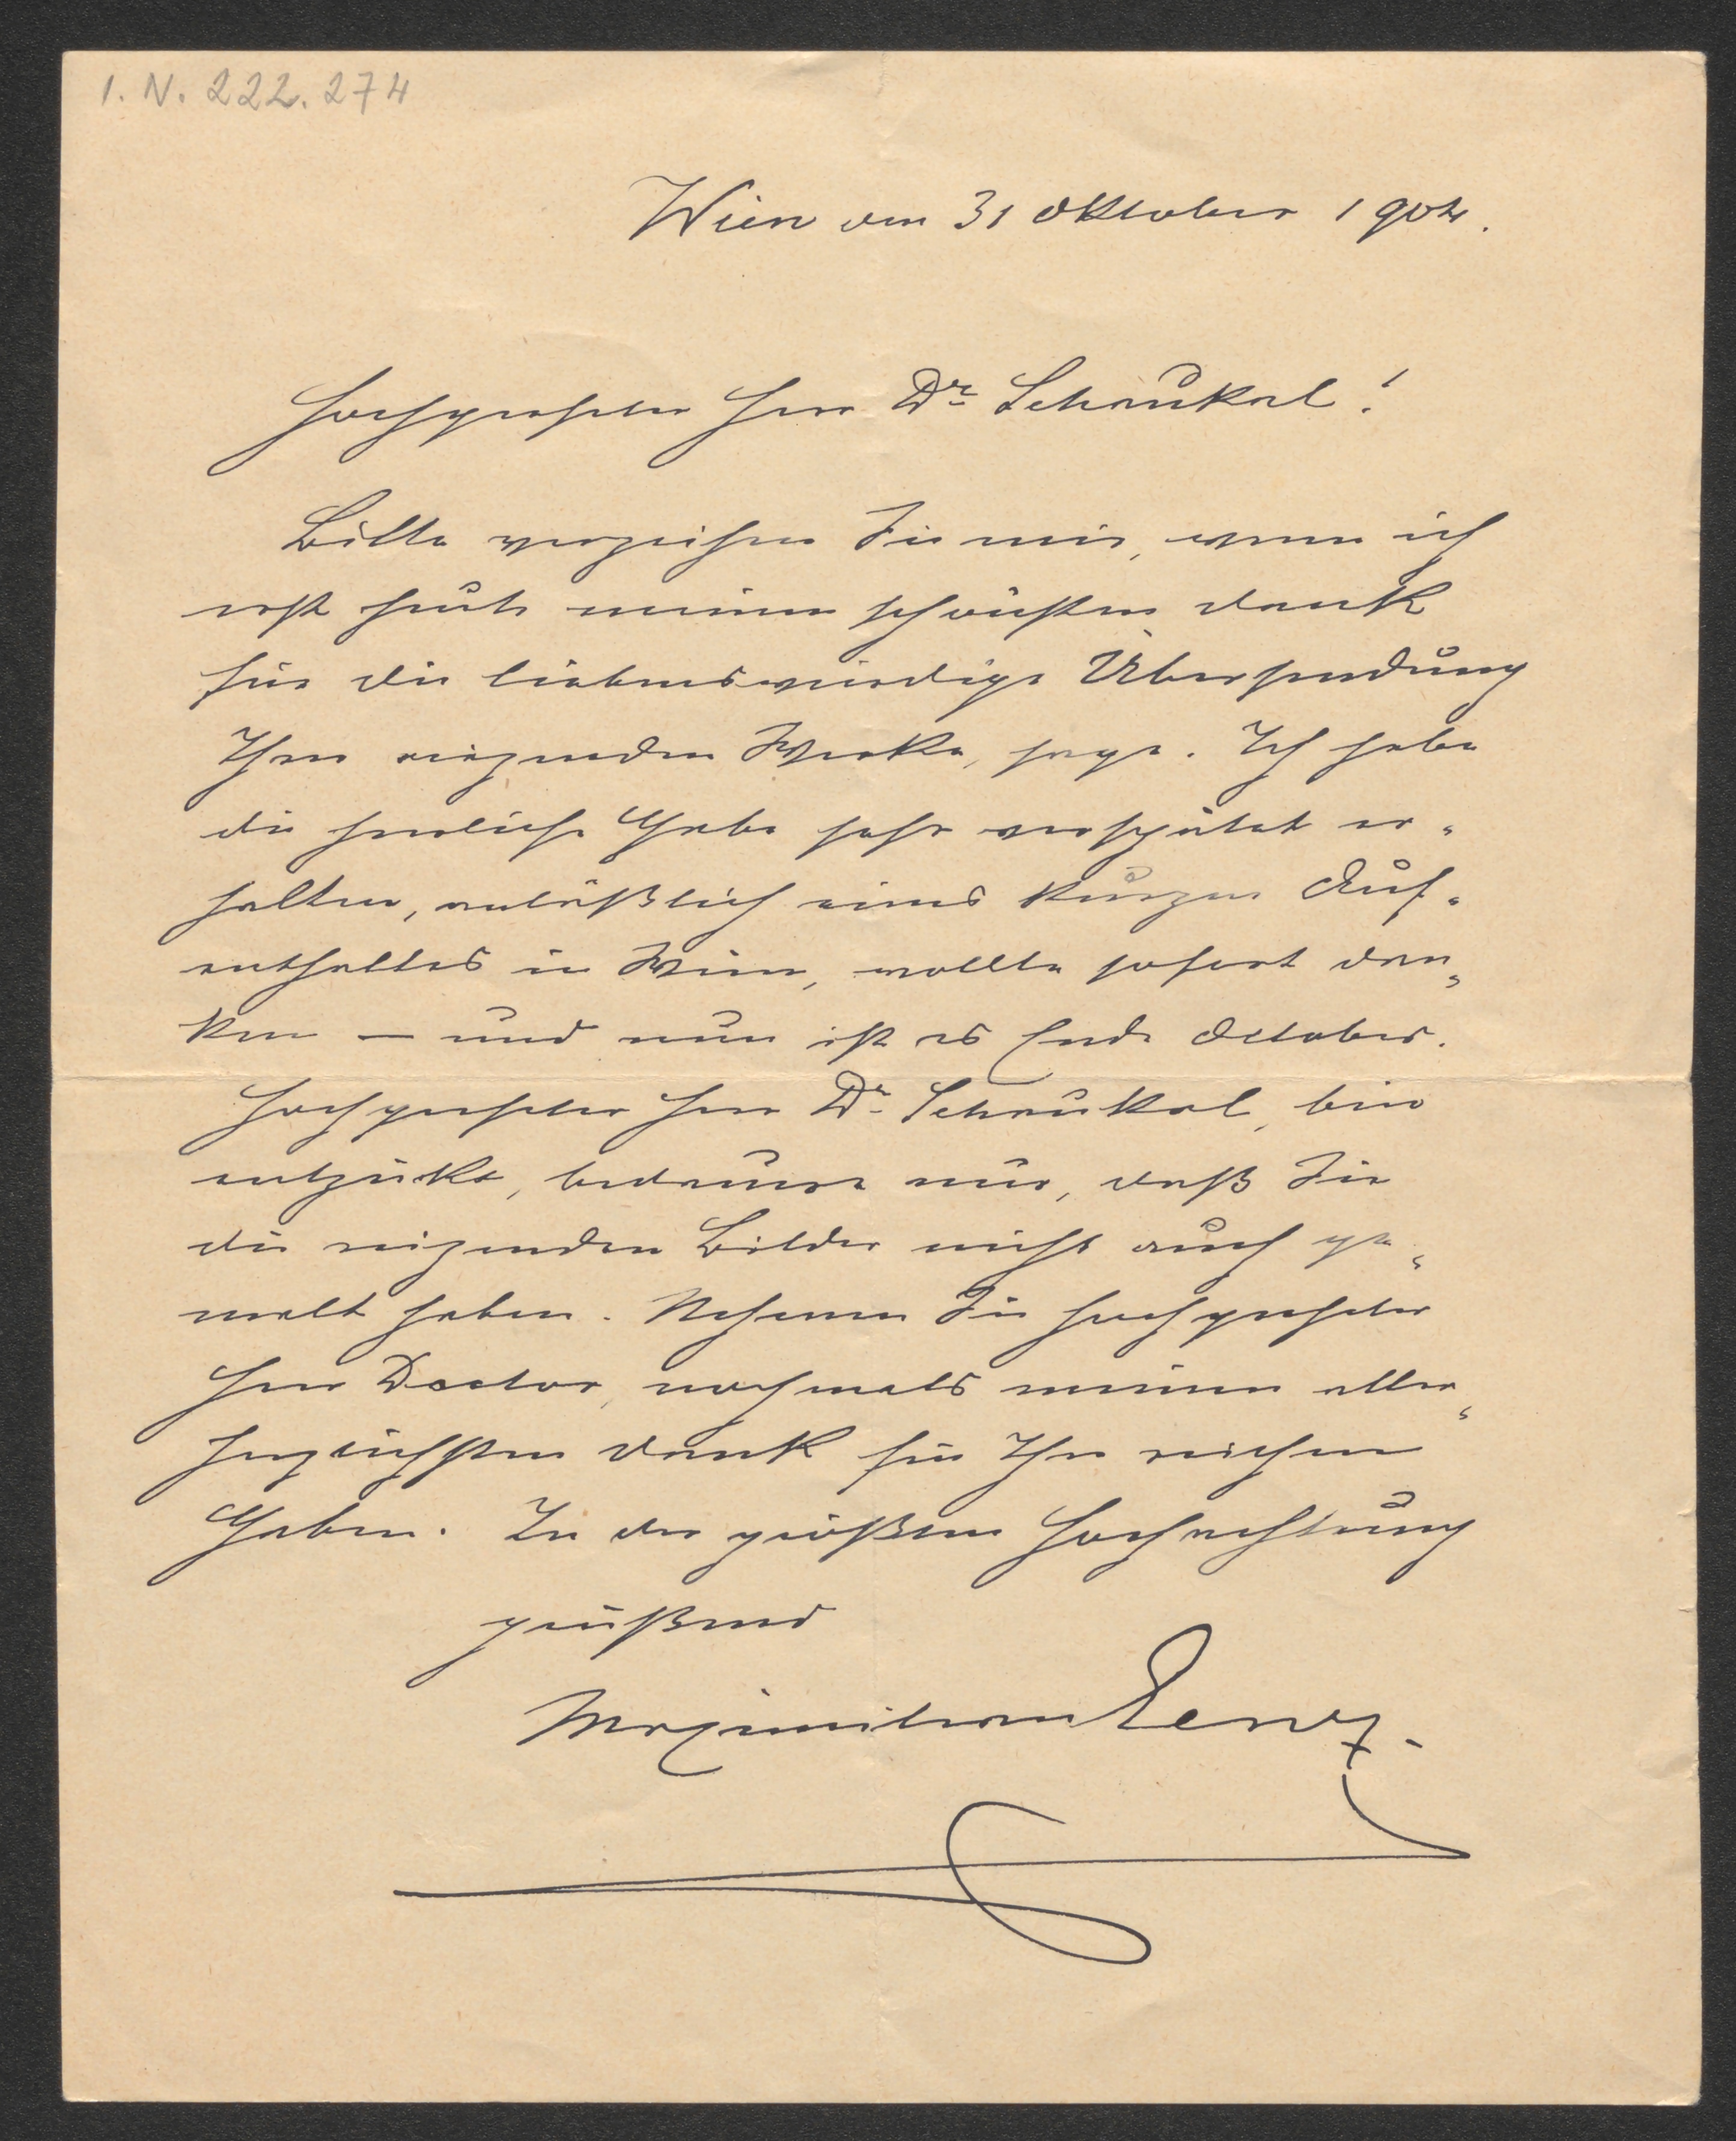 I. N. 222.274
Wien den 31 Oktober 1904.
Hochgeehrter Herr Dr. Schaukal!
Bitte verzeihen Sie mir, wenn ich
erst heute meinen schönsten Dank
für die liebenswürdige Übersendung
Ihrer reizenden Werke, sage. Ich habe
die herrliche Gabe sehr verspätet er-
halten, anläßlich eines kurzen Auf-
enthaltes in Wien, wollte sofort dan-
ken – und nun ist es Ende October.
Hochgeehrter Herr Dr. Schaukal, bin
entzückt, bedauere nur, daß Sie
die reizenden Bilder nicht auch ge-
malt haben. Nehmen Sie hochgeehrter
Herr Doctor, nochmals meinen aller-
herzlichsten Dank für Ihre reichen
Gaben. In der größten Hochachtung
grüßend
Maximilian Lenz.